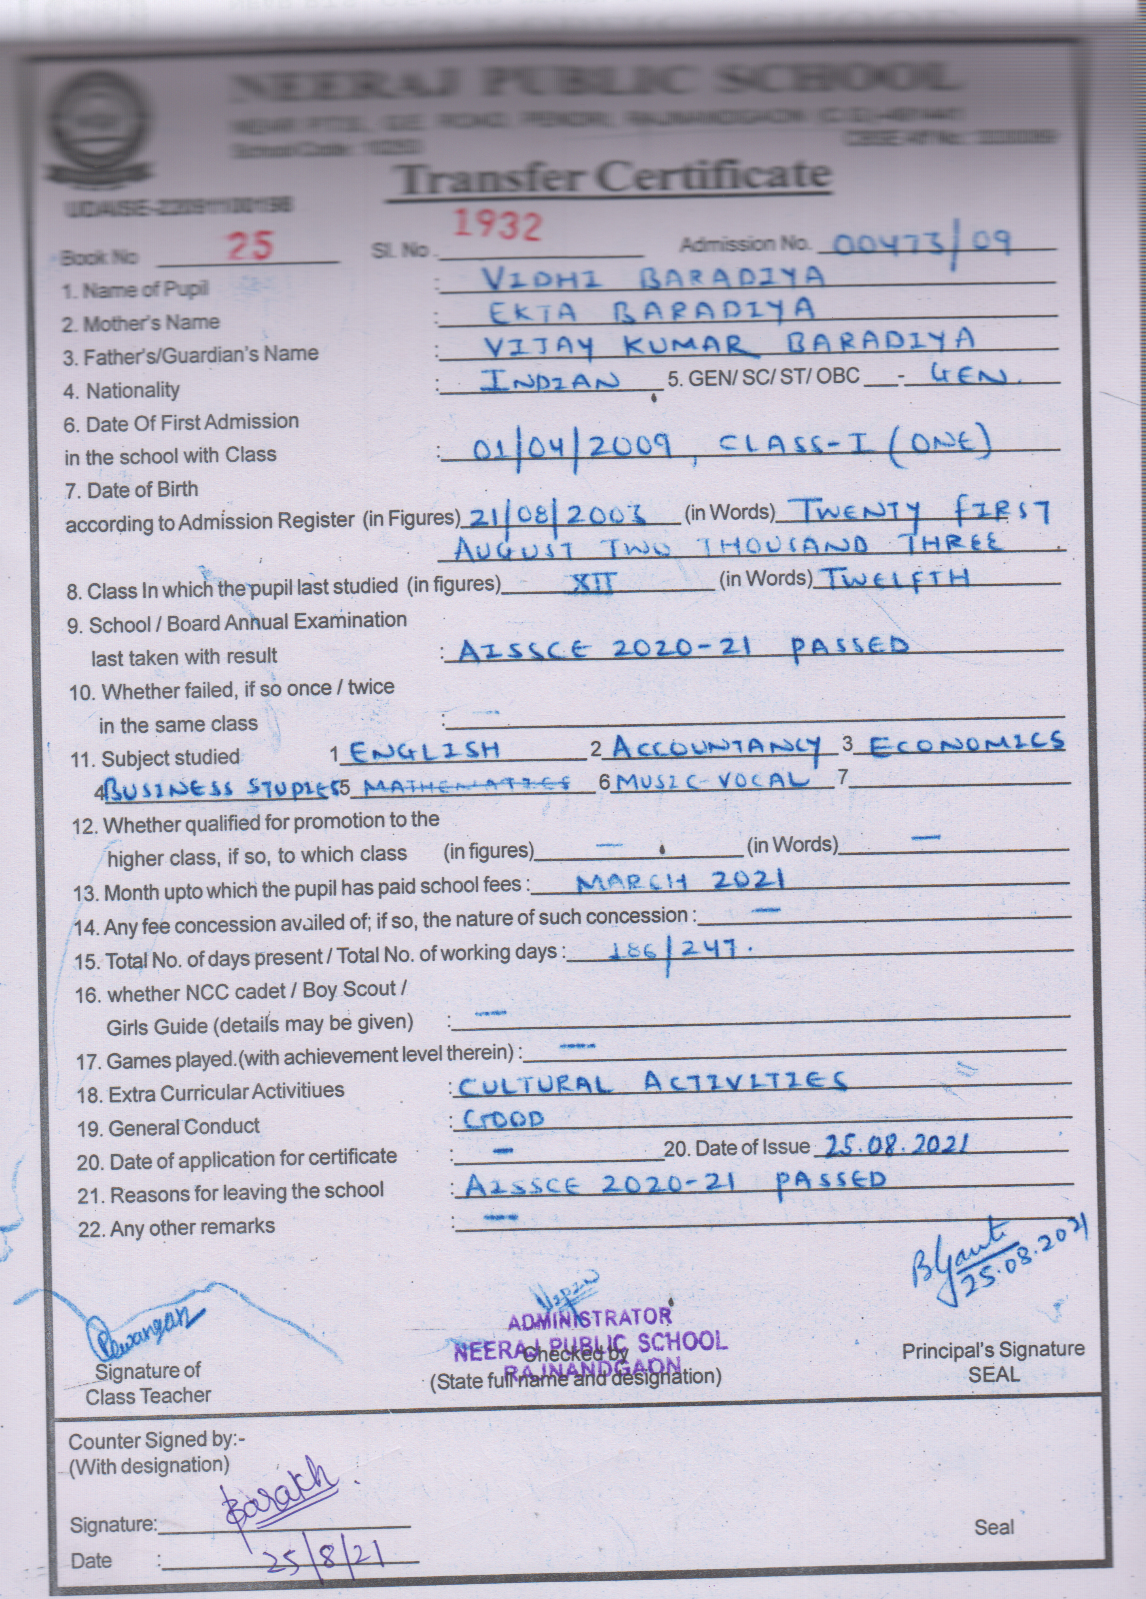 NEERAJ PUBLIC SCHOOL
Transfer Certificate
Book No 25 Sl. No. 1932 Admission No. 00473/09
1. Name of Pupil : VIDHI BARADIYA
2. Mother's Name : EKTA BARADIYA
3. Father's/Guardian's Name : VIJAY KUMAR BARADIYA
4. Nationality : INDIAN 5. GEN/ SC/ ST/ OBC - GEN.
6. Date Of First Admission
in the school with Class : 01/04/2009, CLASS-I (ONE)
7. Date of Birth
according to Admission Register (in Figures) 21/08/2003 (in Words) TWENTY FIRST
AUGUST TWO THOUSAND THREE
8. Class In which the pupil last studied (in figures) XII (in Words) TWELFTH
9. School / Board Annual Examination
last taken with result : AISSCE 2020-21 PASSED
10. Whether failed, if so once / twice
in the same class : —
11. Subject studied 1 ENGLISH 2 ACCOUNTANCY 3 ECONOMICS
4 BUSINESS STUDIES 5 MATHEMATICS 6 MUSIC-VOCAL 7
12. Whether qualified for promotion to the
higher class, if so, to which class (in figures) — (in Words) —
13. Month upto which the pupil has paid school fees : MARCH 2021
14. Any fee concession availed of; if so, the nature of such concession : —
15. Total No. of days present / Total No. of working days : 186/247.
16. whether NCC cadet / Boy Scout /
Girls Guide (details may be given) : —
17. Games played.(with achievement level therein) : —
18. Extra Curricular Activitiues : CULTURAL ACTIVITIES
19. General Conduct : GOOD
20. Date of application for certificate : — 20. Date of Issue 25.08.2021
21. Reasons for leaving the school : AISSCE 2020-21 PASSED
22. Any other remarks : —
25.08.2021
ADMINISTRATOR
NEERAJ PUBLIC SCHOOL
RAJNANDGAON
Signature of
Class Teacher
Checked by
(State full name and designation)
Principal's Signature
SEAL
Counter Signed by:-
(With designation)
Signature:
Seal
Date : 25/8/21